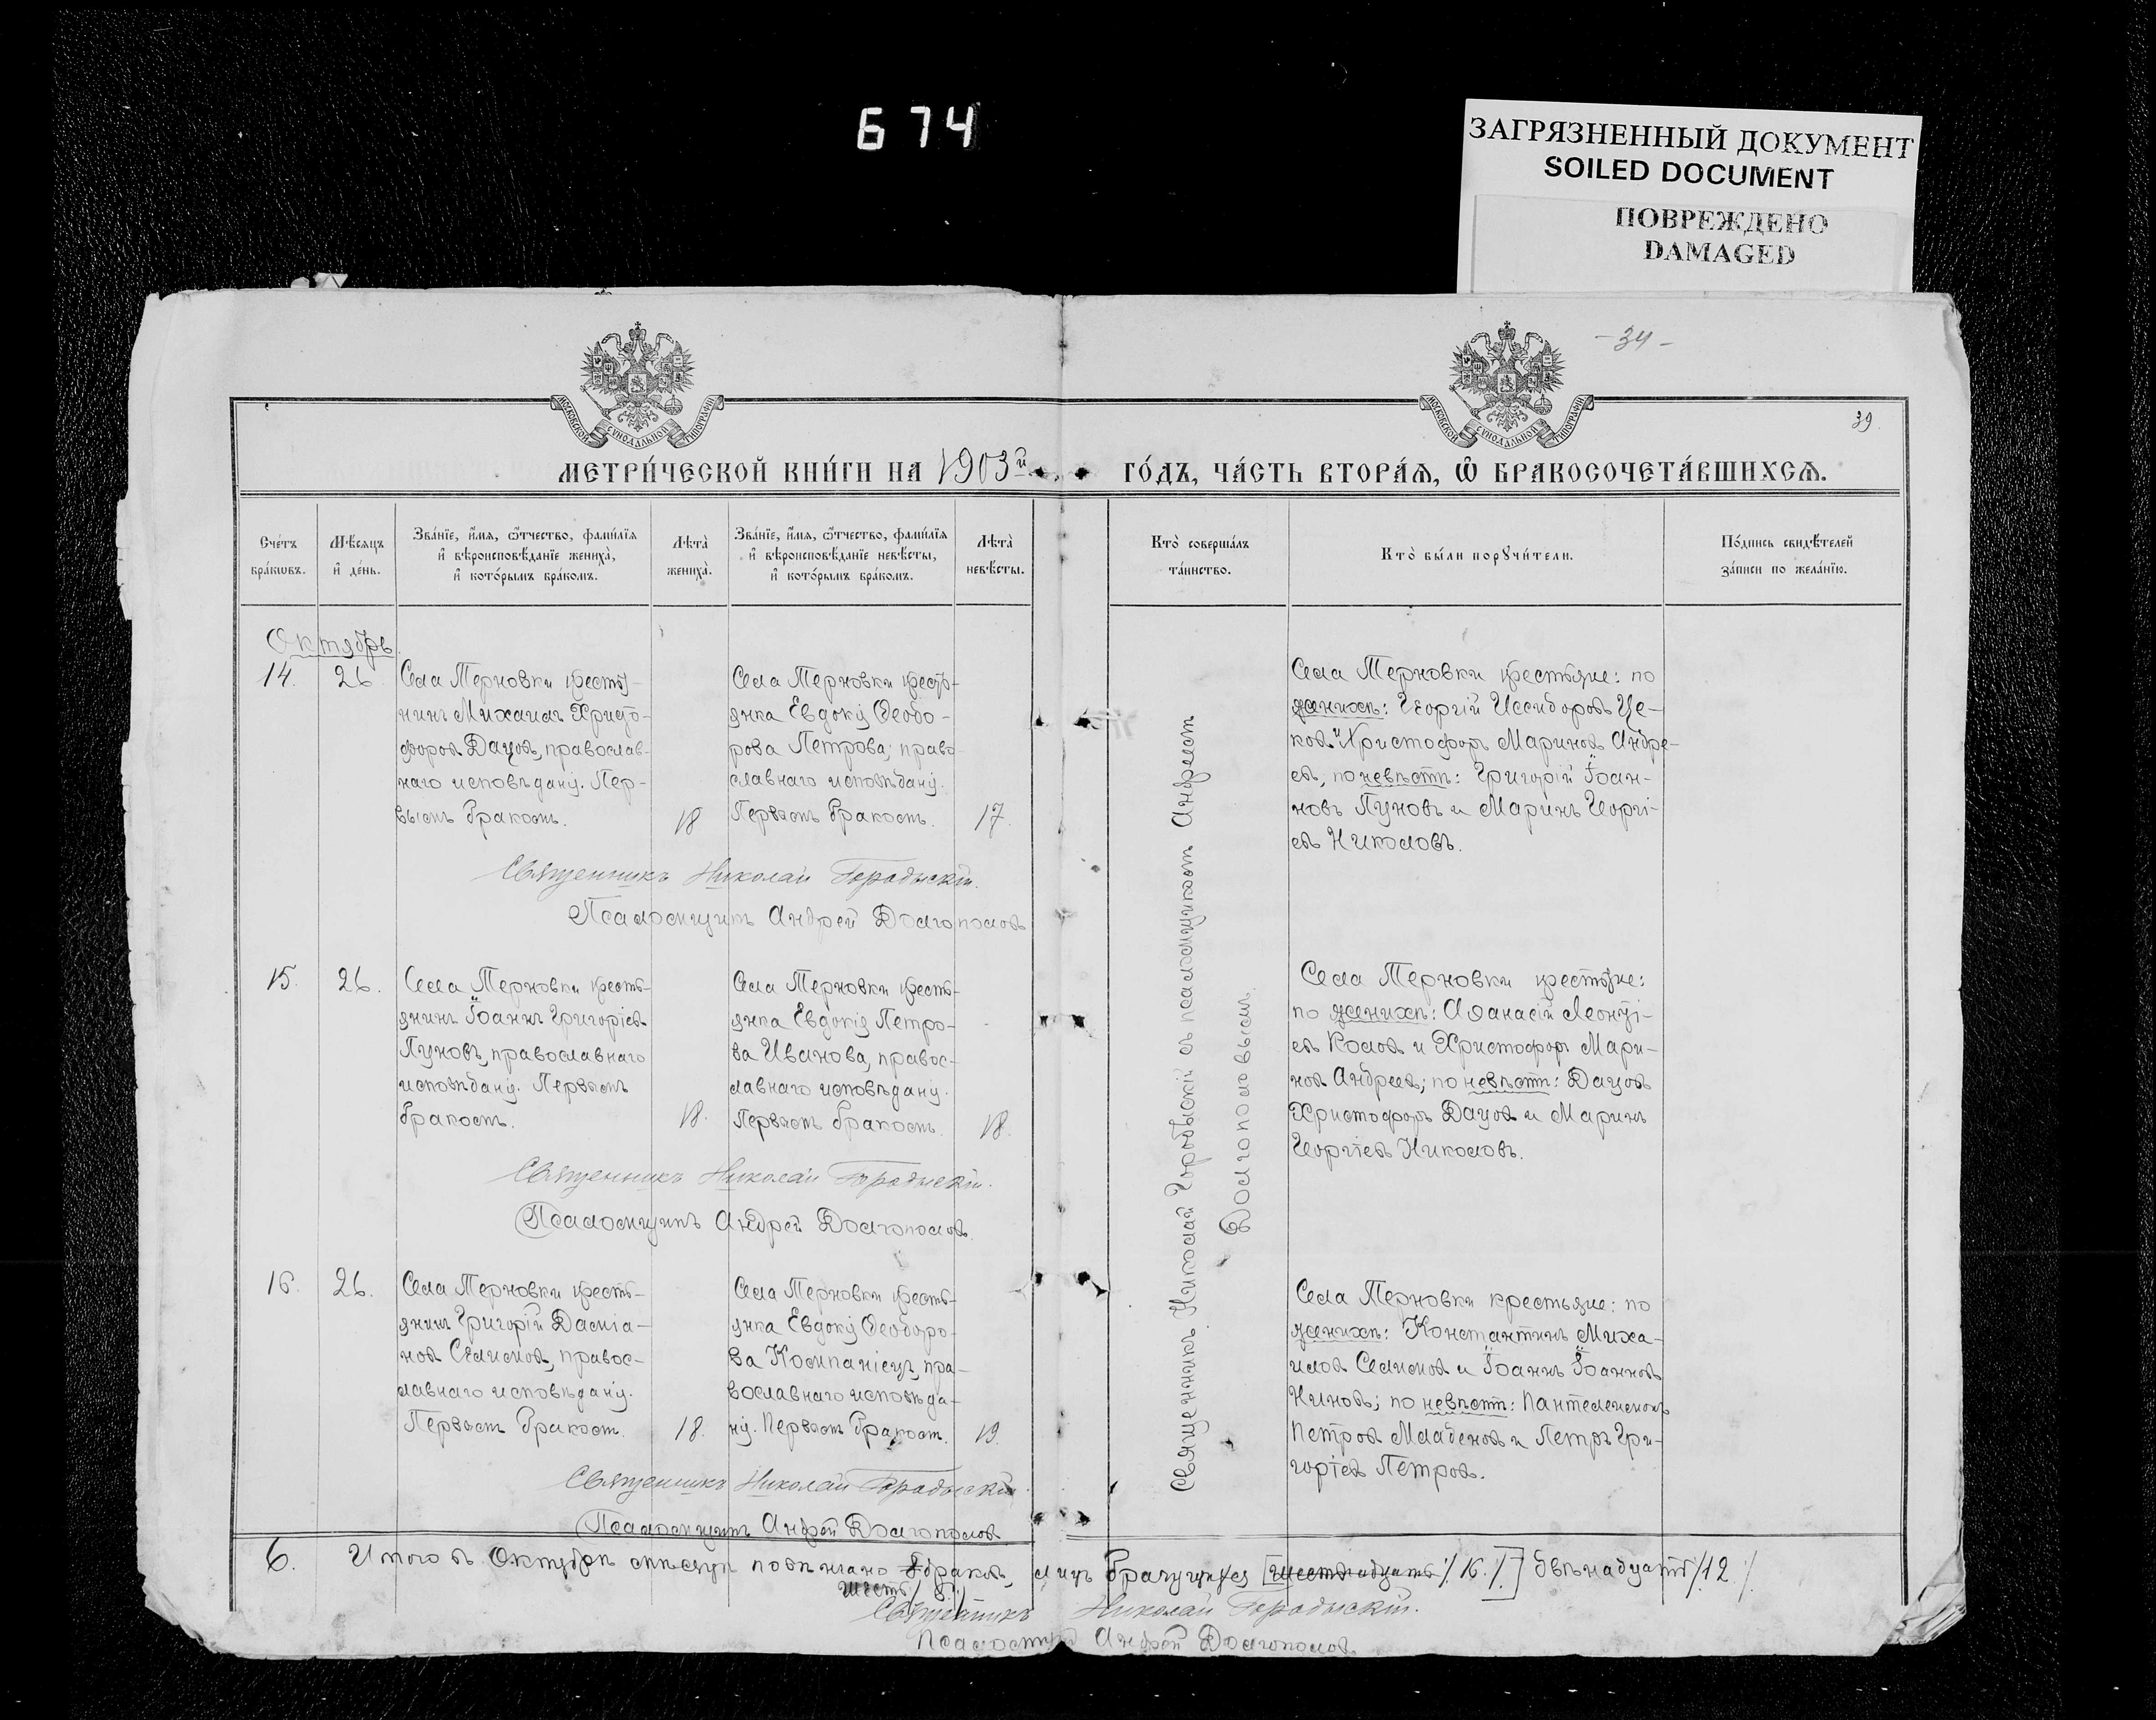 674
ЗАГРЯЗНЕННЫЙ ДОКУМЕНТ
SOILED DOCUMENT
ПОВРЕЖДЕНО
DAMAGED
- 34 -
МОСКОВСКОЙ СУНОДАЛЬНОЙ ТИПОГРАФІИ
МОСКОВСКОЙ СУНОДАЛЬНОЙ ТИПОГРАФІИ
39.
МЕТРИ́ЧЕСКОЙ КНИ́ГИ НА 1903й ГО́ДЪ, ЧА́СТЬ ВТОРА́Ѧ, Ѽ БРАКОСОЧЕТА́ВШИХСѦ.
Сче́тъ
бра́кωвъ.
Мѣ́сѧцъ
и҆ де́нь.
Зва́нїе, и҆́мѧ, ѻ҆́тчество, фами́лїѧ
и҆ вѣроисповѣ́данїе жениха̀,
и҆ кото́рымъ бра́комъ.
Лѣ́та̀
жениха̀.
Зва́нїе, и҆́мѧ, ѻ҆́тчество, фами́лїѧ
и҆ вѣроисповѣ́данїе невѣ́сты,
и҆ кото́рымъ бра́комъ.
Лѣ́та̀
невѣ́сты.
Кто̀ соверша́лъ
та́инство.
Кто̀ бы́ли порꙋчи́тели.
По́дпись свидѣ́телей
за́писи по жела́нїю.
Октябрь
14. 26
Села Терновки крестья-
нинъ Михаилъ Христо-
форовъ Дацовъ, православ-
наго исповѣданія. Пер-
вымъ бракомъ.
18
Села Терновки кресть-
янка Евдокія Ѳеодо-
рова Петрова, право-
славнаго исповѣданія.
Первымъ бракомъ.
17.
Села Терновки крестьяне: по
женихѣ: Георгій Исидоровъ Це-
ковъ и Христофоръ Мариновъ Андре-
евъ, по невѣстѣ: Григорій Іоан-
новъ Пуновъ и Маринъ Георгі-
евъ Николовъ.
Священникъ Николай Городыскій.
Псаломщикъ Андрей Долгополовъ
15. 26.
Села Терновки кресть-
янинъ Іоаннъ Григоріевъ
Пуновъ, православнаго
исповѣданія. Первымъ
бракомъ.
18.
Села Терновки кресть-
янка Евдокія Петро-
ва Иванова, правос-
лавнаго исповѣданія.
Первымъ бракомъ.
18.
Села Терновки крестьяне:
по женихѣ: Аѳанасій Леонті-
евъ Колевъ и Христофоръ Мари-
новъ Андреевъ; по невѣстѣ: Дацовъ
Христофоръ Дацовъ и Маринъ
Георгіевъ Николовъ.
Священникъ Николай Городыскій.
Псаломщикъ Андрей Долгополовъ.
16. 26.
Села Терновки кресть-
янинъ Григорій Даміа-
новъ Селимовъ, правос-
лавнаго исповѣданія.
Первымъ бракомъ.
18.
Села Терновки кресть-
янка Евдокія Ѳеодоро-
ва Компаніецъ, пра-
вославнаго исповѣда-
нія. Первымъ бракомъ.
19.
Села Терновки крестьяне: по
женихѣ: Константинъ Миха-
иловъ Селимовъ и Іоаннъ Іоанновъ
Ниновъ; по невѣстѣ: Пантелеимонъ
Петровъ Младеновъ и Петръ Гри-
горіевъ Петровъ.
Священникъ Николай Городыскій
Псаломщикъ Андрей Долгополовъ
Священникъ Николай Городыскій съ псаломщикомъ Андреемъ
Долгополовымъ.
6. Итого въ Октябрѣ мѣсяцѣ повѣнчано браковъ, лицъ брачущихся [шестнадцать /16./] двѣнадцать /12./
шесть /6/
Священникъ Николай Городыскій.
Псаломщикъ Андрей Долгополовъ.